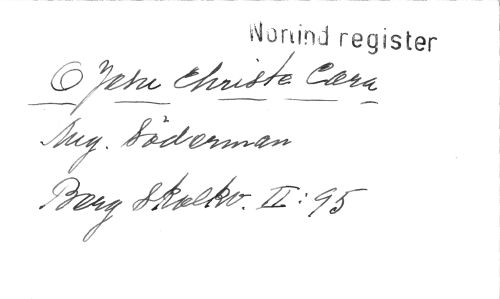 Nonind register
O Jesu Christe Cara
Aug. Söderman
Berg Skolkv. II:95